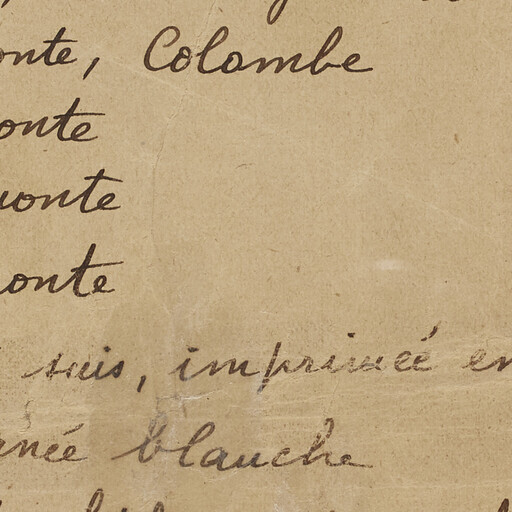 onte, Colombe
onte
onte
onte
suis, imprimée en
née blanche